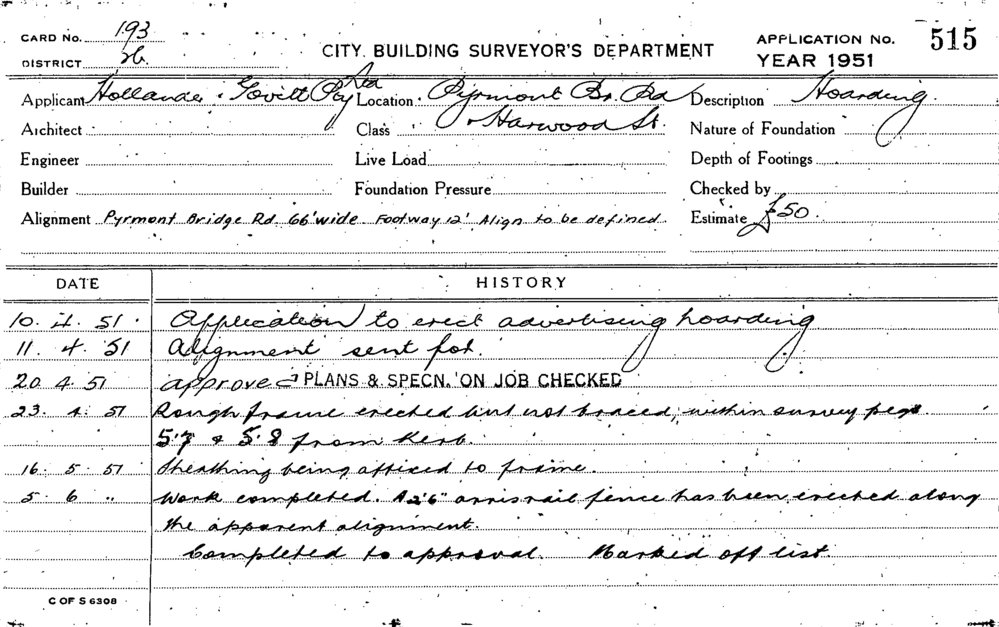 CARD No. 193
DISTRICT 2b.
CITY BUILDING SURVEYOR'S DEPARTMENT
APPLICATION No. 515
YEAR 1951
Applicant Hollander Govett Pty Ltd Location Pyrmont Br. Rd Description Hoarding.
Architect Class & Harwood St. Nature of Foundation
Engineer Live Load Depth of Footings
Builder Foundation Pressure Checked by
Alignment Pyrmont Bridge Rd 66' wide Footway 12' Align to be defined Estimate £50.
DATE HISTORY
10. 4. 51. Application to erect advertising hoarding
11. 4. 51 Alignment sent for.
20 4. 51 approved PLANS & SPECN. ON JOB CHECKED
23. 4. 51 Rough frame erected but not braced, within survey pegs.
5.7 & 5.8 from Kerb.
16. 5. 51 Sheathing being afficed to frame.
5. 6 " Work completed. A 2'6" arris rail fence has been erected along
the apparent alignment.
Completed to approval. Marked off list.
C OF S 6308